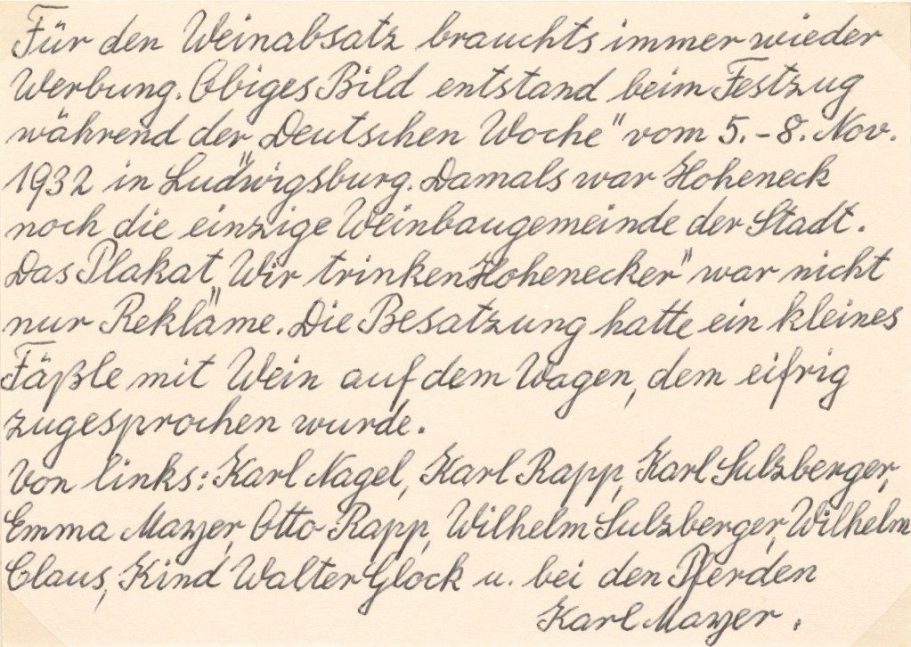 Für den Weinabsatz brauchts immer wieder
Werbung. Obiges Bild entstand beim Festzug
während der „Deutschen Woche" vom 5.-8. Nov.
1932 in Ludwigsburg. Damals war Hoheneck
noch die einzige Weinbaugemeinde der Stadt.
Das Plakat „Wir trinken Hohenecker" war nicht
nur Reklame. Die Besatzung hatte ein kleines
Fäßle mit Wein auf dem Wagen, dem eifrig
zugesprochen wurde.
Von links: Karl Nagel, Karl Rapp, Karl Sulzberger,
Emma Mayer, Otto Rapp, Wilhelm Sulzberger, Wilhelm
Claus, Kind Walter Glock u. bei den Pferden
Karl Mayer.